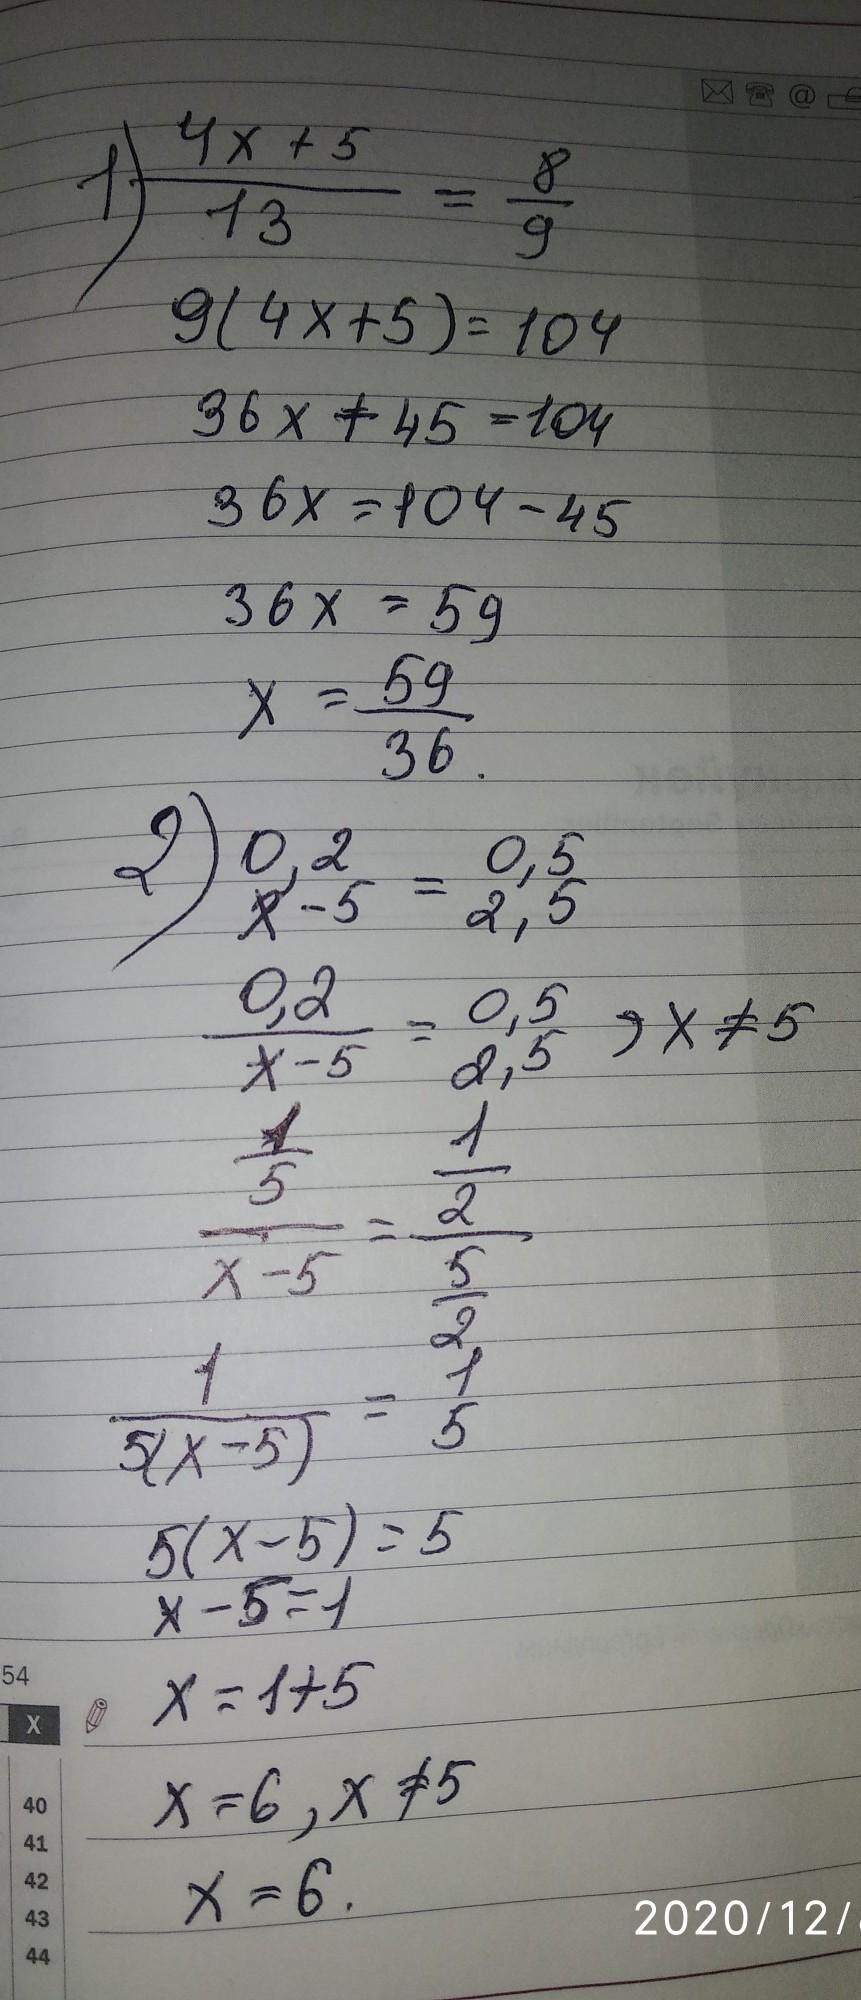 @
1) 4x + 5 / 13 = 8 / 9
9(4x+5) = 104
36x + 45 = 104
36x = 104 - 45
36x = 59
x = 59 / 36.
2) 0,2 / x - 5 = 0,5 / 2,5
0,2 / x - 5 = 0,5 / 2,5 , x ≠ 5
1/5 / x - 5 = 1/2 / 5/2
1 / 5(x - 5) = 1 / 5
5(x - 5) = 5
x - 5 = 1
x = 1 + 5
54
X
x = 6, x ≠ 5
40
41
x = 6.
42
43
44
2020/12/